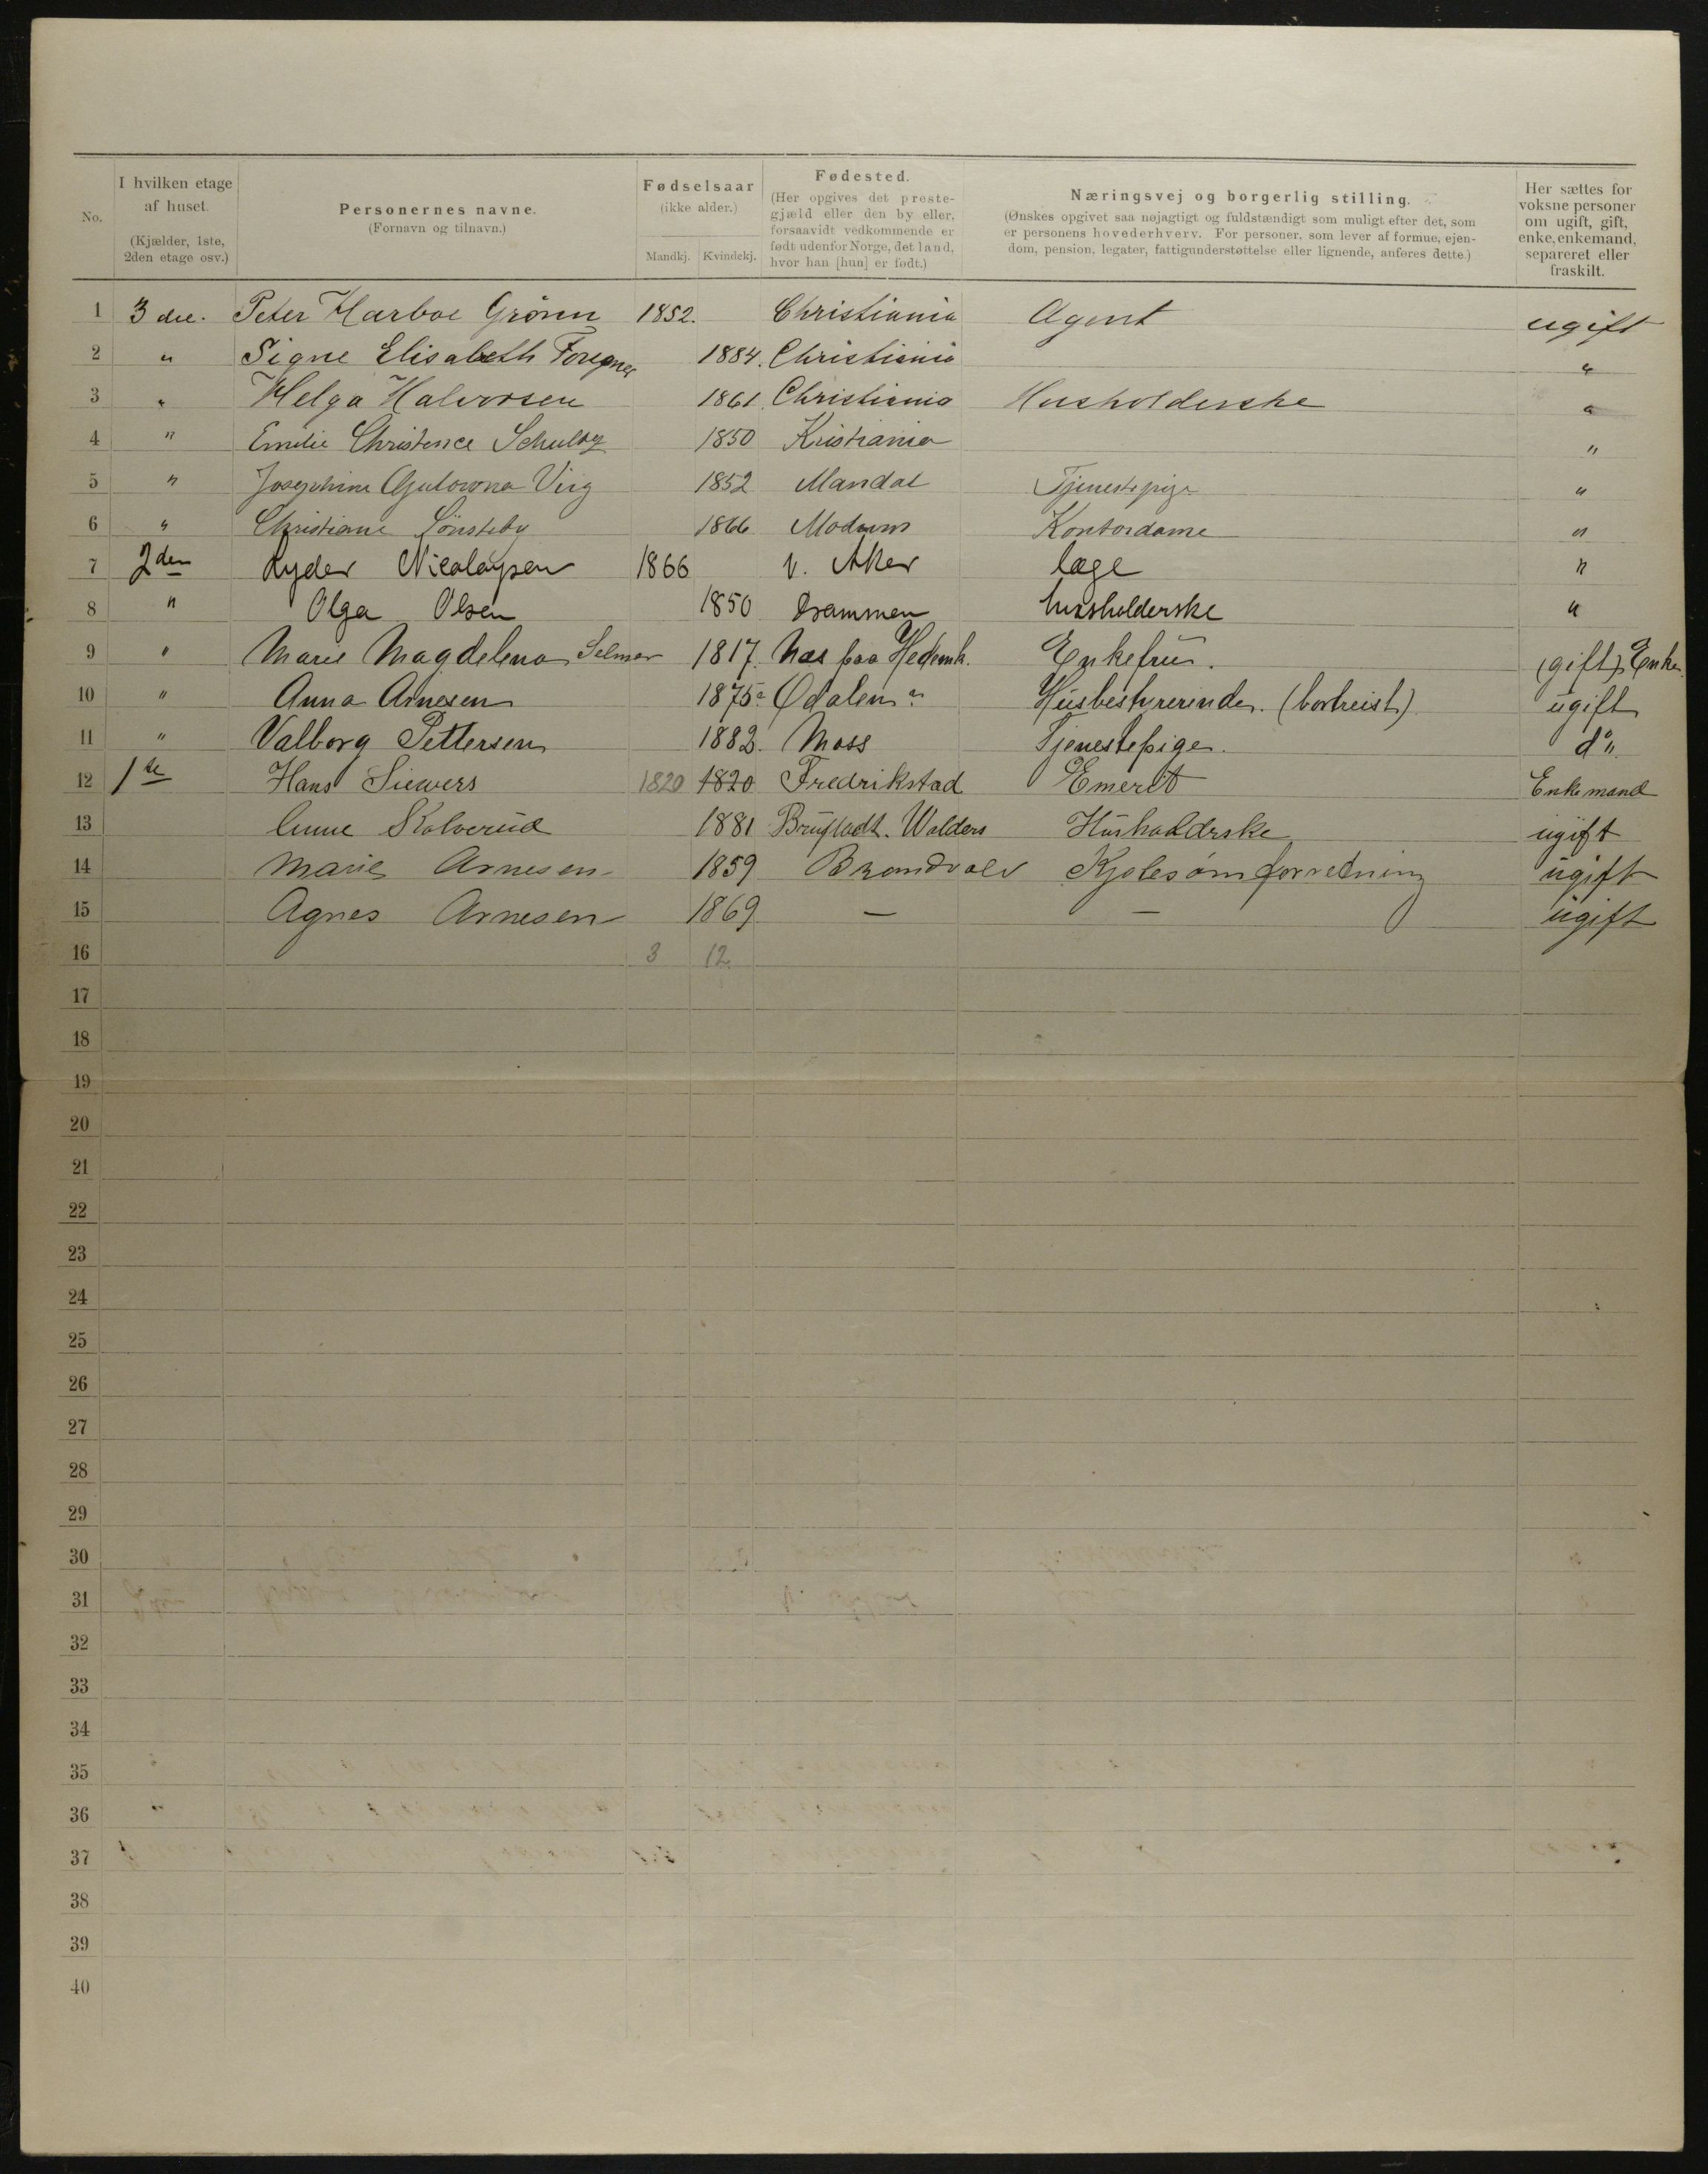 No.
I hvilken etage
af huset.
(Kjælder, 1ste,
2den etage osv.)
Personernes navne.
(Fornavn og tilnavn.)
Fødselsaar
(ikke alder.)
Mandkj. Kvindekj.
Fødested.
(Her opgives det preste-
gjæld eller den by eller,
forsaavidt vedkommende er
født udenfor Norge, det land,
hvor han [hun] er født.)
Næringsvej og borgerlig stilling.
(Ønskes opgivet saa nøjagtigt og fuldstændigt som muligt efter det, som
er personens hovederhverv. For personer, som lever af formue, ejen-
dom, pension, legater, fattigunderstøttelse eller lignende, anføres dette.)
Her sættes for
voksne personer
om ugift, gift,
enke, enkemand,
separeret eller
fraskilt.
1 3die. Peter Harboe Grönn 1852. Christiania Agent ugift
2 " Signe Elisabeth 1884. Christiania "
3 " Helga Halvorsen 1861 Christiania Husholderske "
4 " Emilie Christence Schultz 1850 Kristiania "
5 " Josephine Virg 1852 Mandal Tjenestepige "
6 " Christiane Sönsteby 1866 Modum Kontordame "
7 2den Lyder Nicolaysen 1866 V. Aker læge "
8 " Olga Olsen 1850 Drammen husholderske "
9 " Marie Magdelena Selmer 1817. Næs paa Hedemk. Enkefrue. (gift) Enke.
10 " Anna Arnesen 1875 Odalen Husbestyrerinde. (bortreist) ugift
11 " Valborg Pettersen 1882. Moss Tjenestepige. do "
12 1ste Hans Siewers 1820 1820 Fredrikstad Emerit Enkemand
13 Anne Kolverud 1881 Walders Husholdrske ugift
14 Marie Arnesen 1859 Brandvold Kjolesømforretning ugift
15 Agnes Arnesen 1869 — — ugift
16 3 12
17
18
19
20
21
22
23
24
25
26
27
28
29
30
31
32
33
34
35
36
37
38
39
40